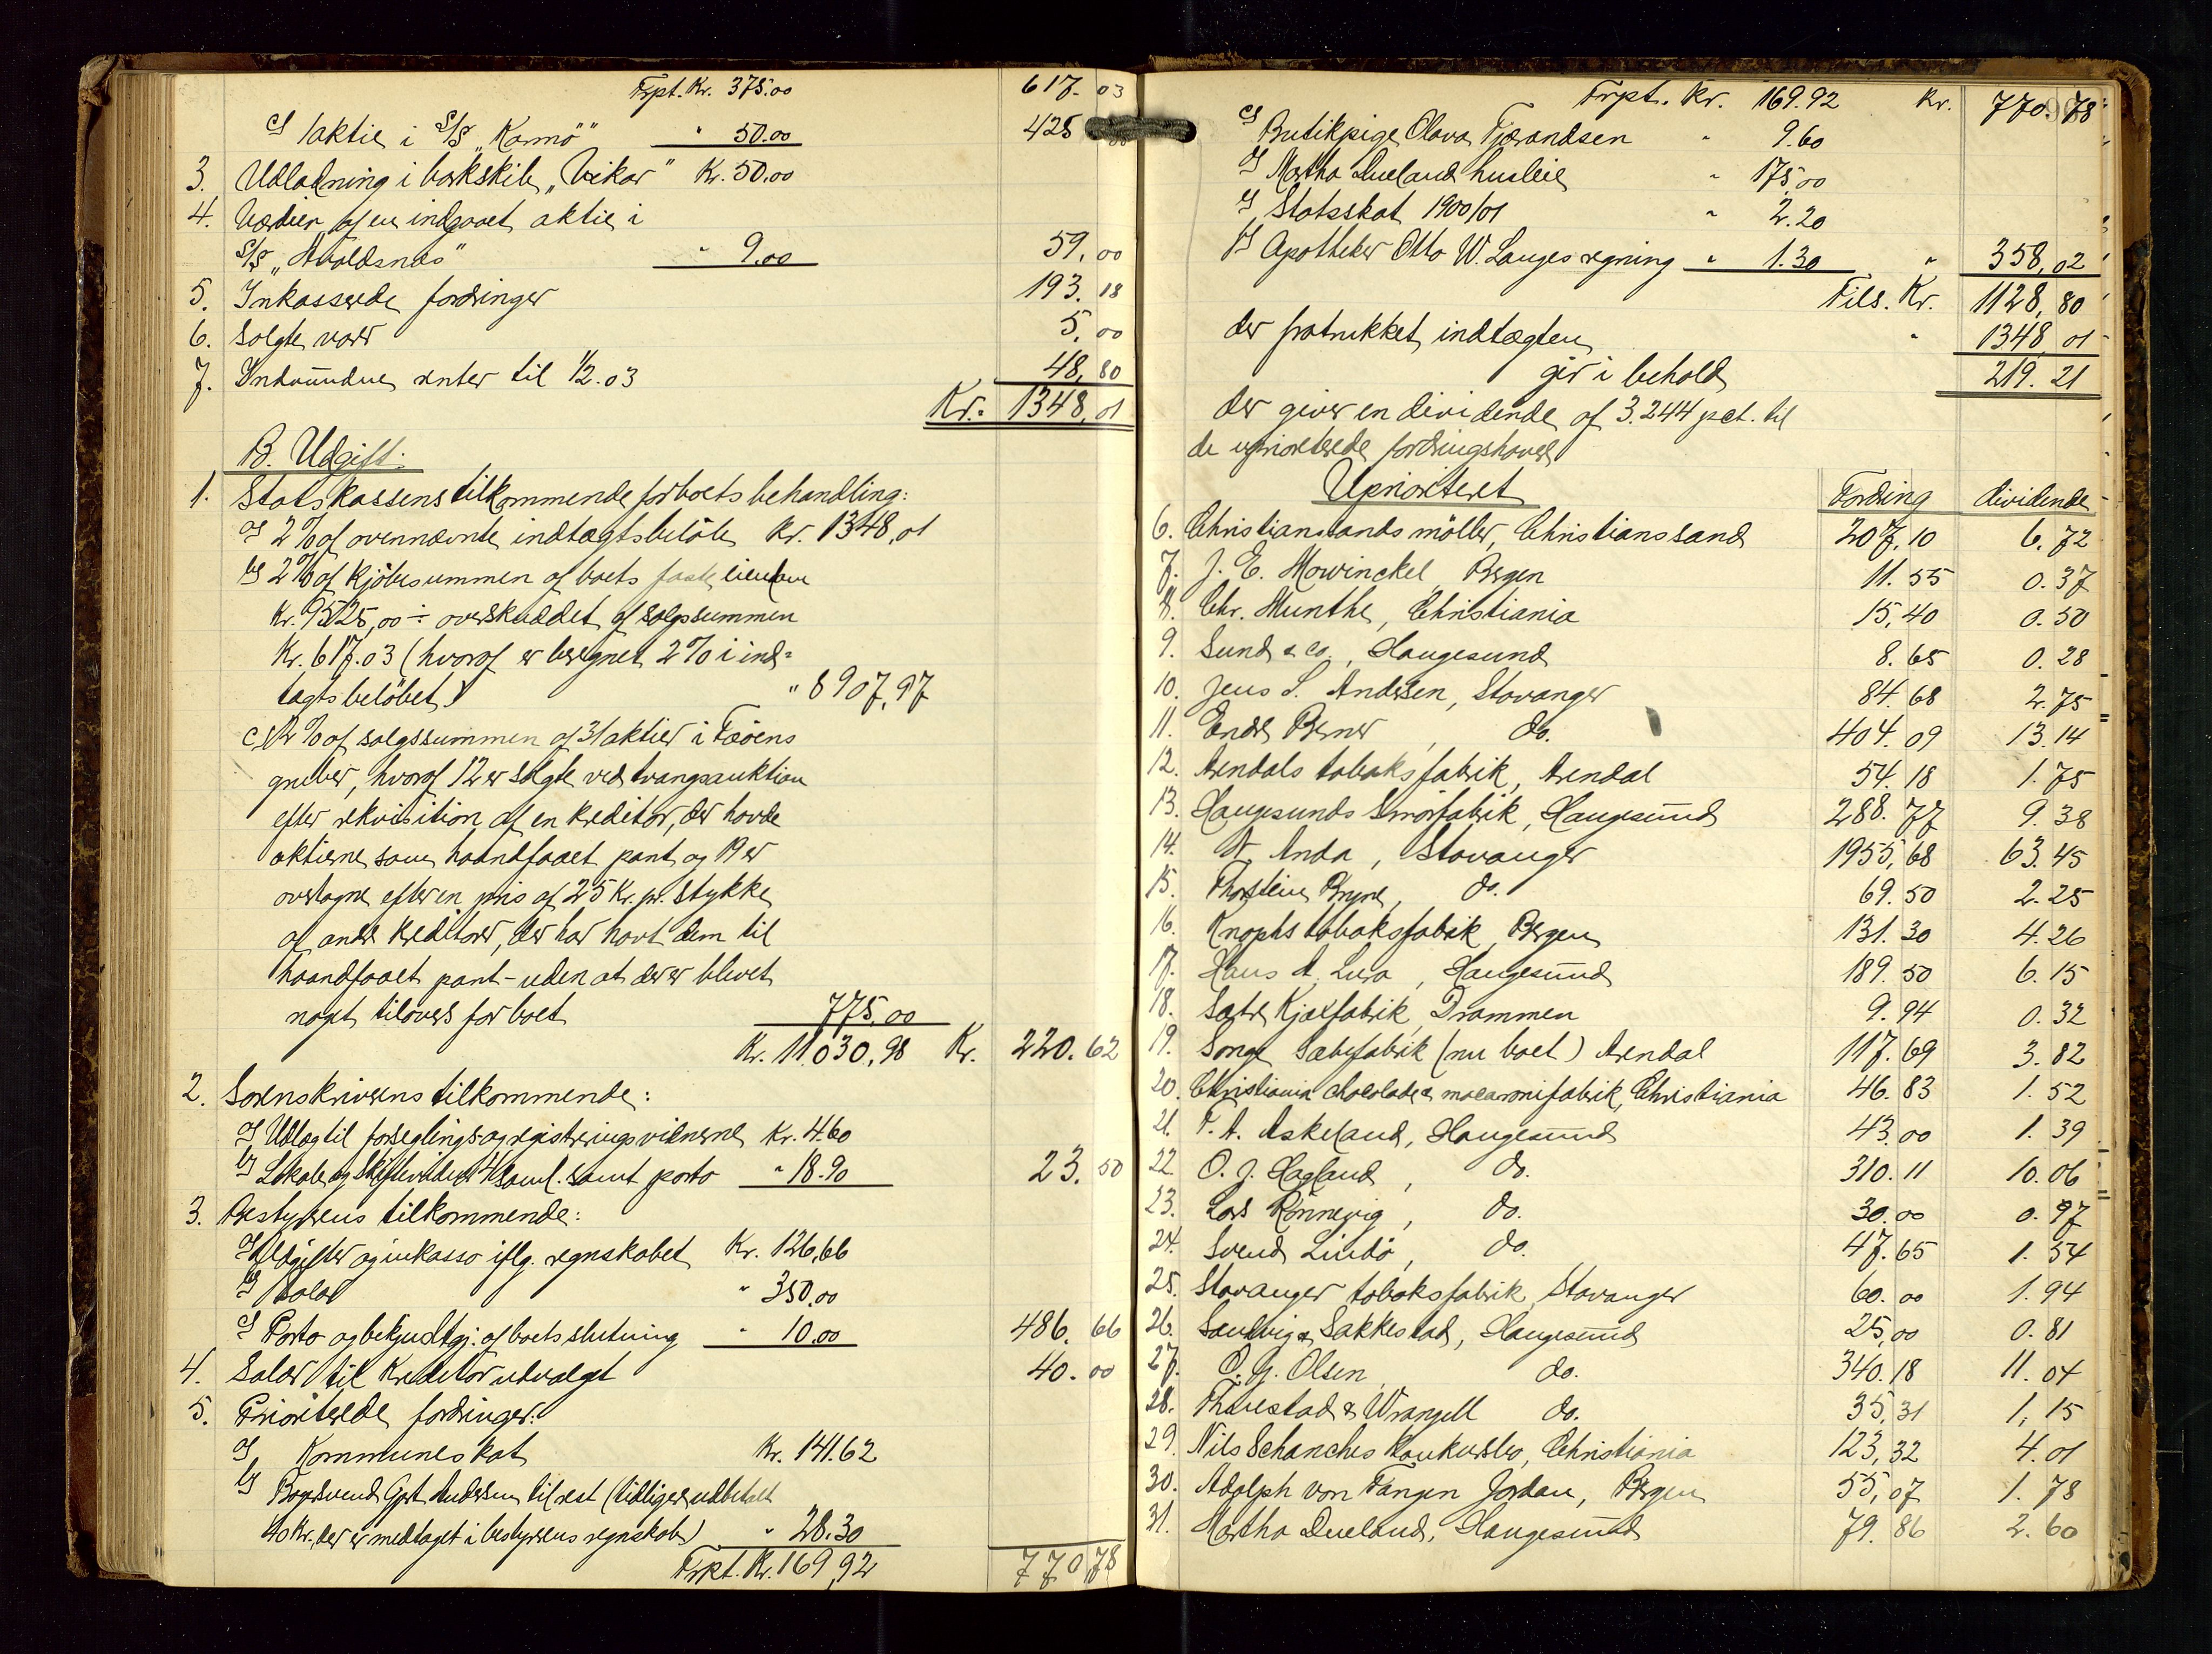 Trpt. Kr. 375.00 617.03
c) 1 aktie i S/S „Karmö” " 50.00 425
3. Udladning i barkskib „Vikar” Kr. 50.00
4. Værdien af en indgaaet aktie i
S/S „Avaldsnes” " 9.00 59,00
5. Inkasserede fordringer 193.18
6. Solgte varer 5,00
7. Indvundne renter til ½.03 48,80
Kr. 1348,01
B. Udgift:
1. Statskassens tilkommende for boets behandling:
a) 2% af ovennævnte indtægtsbeløb Kr. 1348,01
b) 2% af kjøbesummen af boets faste eiendom
Kr. 9525,00 ÷ overskuddet af salgssummen
Kr. 617.03 (hvoraf er beregnet 2% i ind-
tægtsbeløbet) " 8907,97
c) 2% af salgssummen af 31 aktier i Føøens
gruber, hvoraf 12 er solgte ved tvangsauktion
efter rekvisition af en kreditor, der havde
aktierne som haandfaaet pant og 19 er
overtagne efter en pris af 25 Kr. pr. stykke
af andre kreditorer, der har havt dem til
haandfaaet pant - uden at der er blevet
noget tilovers for boet 775,00
Kr. 11030,98 Kr. 220.62
2. Sorenskriverens tilkommende:
a) Udlæg til forseglings- og registreringsvidnerne Kr. 4.60
b) Lokale og skiftevidner 4 saml. samt porto " 18.90 23.50
3. Bestyrerens tilkommende:
a) Udgifter og inkasso iflg. regnskabet Kr. 126,66
b) Salær " 350,00
c) Porto og bekjendtgj. af boets slutning " 10.00 486.66
4. Salær til Kreditorudvalget 40.00
5. Prioriterede fordringer:
a) Kommuneskat Kr. 141.62
b) Bagersvend Gert Andersen til rest (tidligere udbetalt
40 Kr., der er medtaget i bestyrerens regnskab) " 28.30
Trpt. Kr. 169,92 770 78
Trpt. Kr. 169.92 Kr. 770.78
c) Butikpige Olava Tjærandsen " 9.60
d) Martha Dueland husleie " 175,00
e) Statsskat 1900/01 " 2.20
f) Apotheker Otto W. Langes regning " 1.30 " 358,02
Tils. Kr. 1128,80
der fratrukket indtægten " 1348,01
gir i behold 219.21
der giver en dividende af 3.244 pct. til
de uprioriterede fordringshavere
Uprioriteret Fordring dividende
6. Christianssands möller, Christianssand 207.10 6.72
7. J. E. Mowinckel Bergen 11.55 0.37
8. Chr. Munthe, Christiania 15,40 0.50
9. Sund & co., Haugesund 8.65 0.28
10. Jens S. Andersen, Stavanger 84.68 2.75
11. Endre Berner, do. 404.09 13.14
12. Arendals tobaksfabrik, Arendal 54.18 1.75
13. Haugesunds Smørfabrik, Haugesund 288.77 9.38
14. N. Anda, Stavanger 1955,68 63.45
15. Thorstein Bryne, do. 69.50 2.25
16. Knophs tobaksfabrik Bergen 131.30 4.26
17. Hans A. Lura, Haugesund 189.50 6.15
18. Sætre Kjæxfabrik, Drammen 9.94 0.32
19. Songe Sæbefabrik (nu boet) Arendal 117.69 3.82
20. Christiania chocolade & macaronifabrik, Christiania 46.83 1.52
21. T. A. Askeland, Haugesund 43.00 1.39
22. O. J. Hagland, do. 310.11 10.06
23. Lars Rönnevig, do. 30.00 0.97
24. Svend Lindö, do. 47.65 1.54
25. Stavanger tobaksfabrik, Stavanger 60.00 1.94
26. Sandvig & Sakkestad, Haugesund 25,00 0.81
27. O. G. Olsen, do. 340.18 11.04
28. Thuestad & Wrangell do. 35,31 1,15
29. Nils Schanches Konkursbo, Christiania 123,32 4.01
30. Adolph von Fangen Jordan, Bergen 55,07 1.78
31. Martha Dueland, Haugesund 79.86 2.60